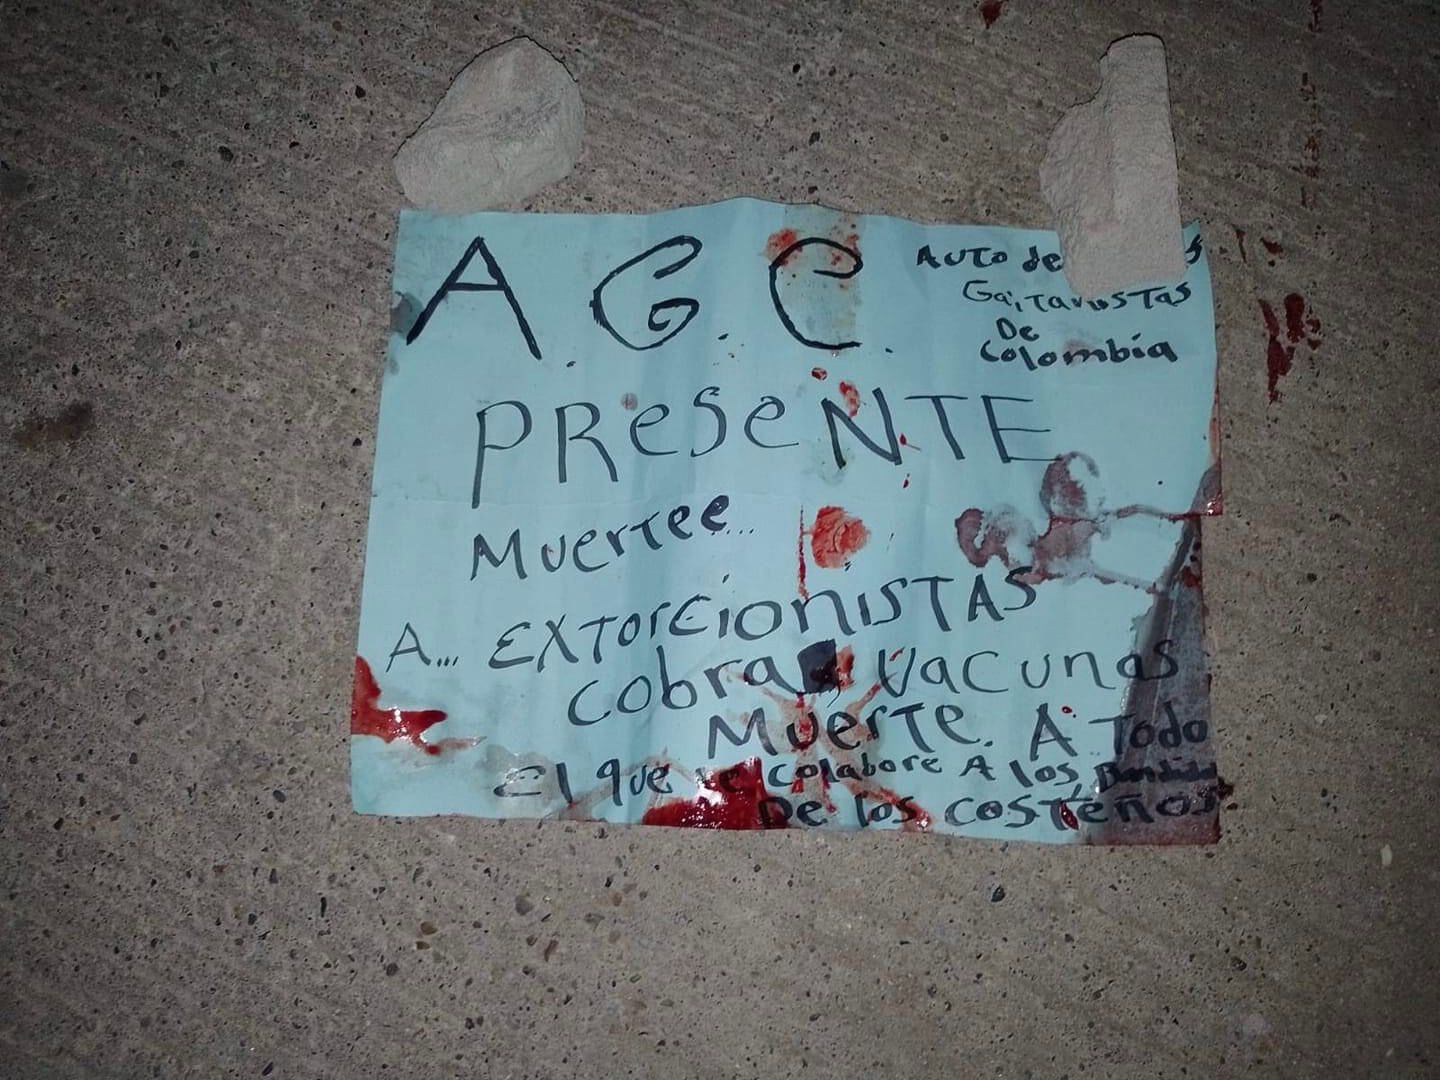 A.G.C.
Auto de s
Gaitanistas
De
Colombia
PReSeNTE
Muertee...
A... EXTorcionisTAS
cobra, Vacunas
Muerte. A Todo
El que le colabore A los Bandidos
De los costeños